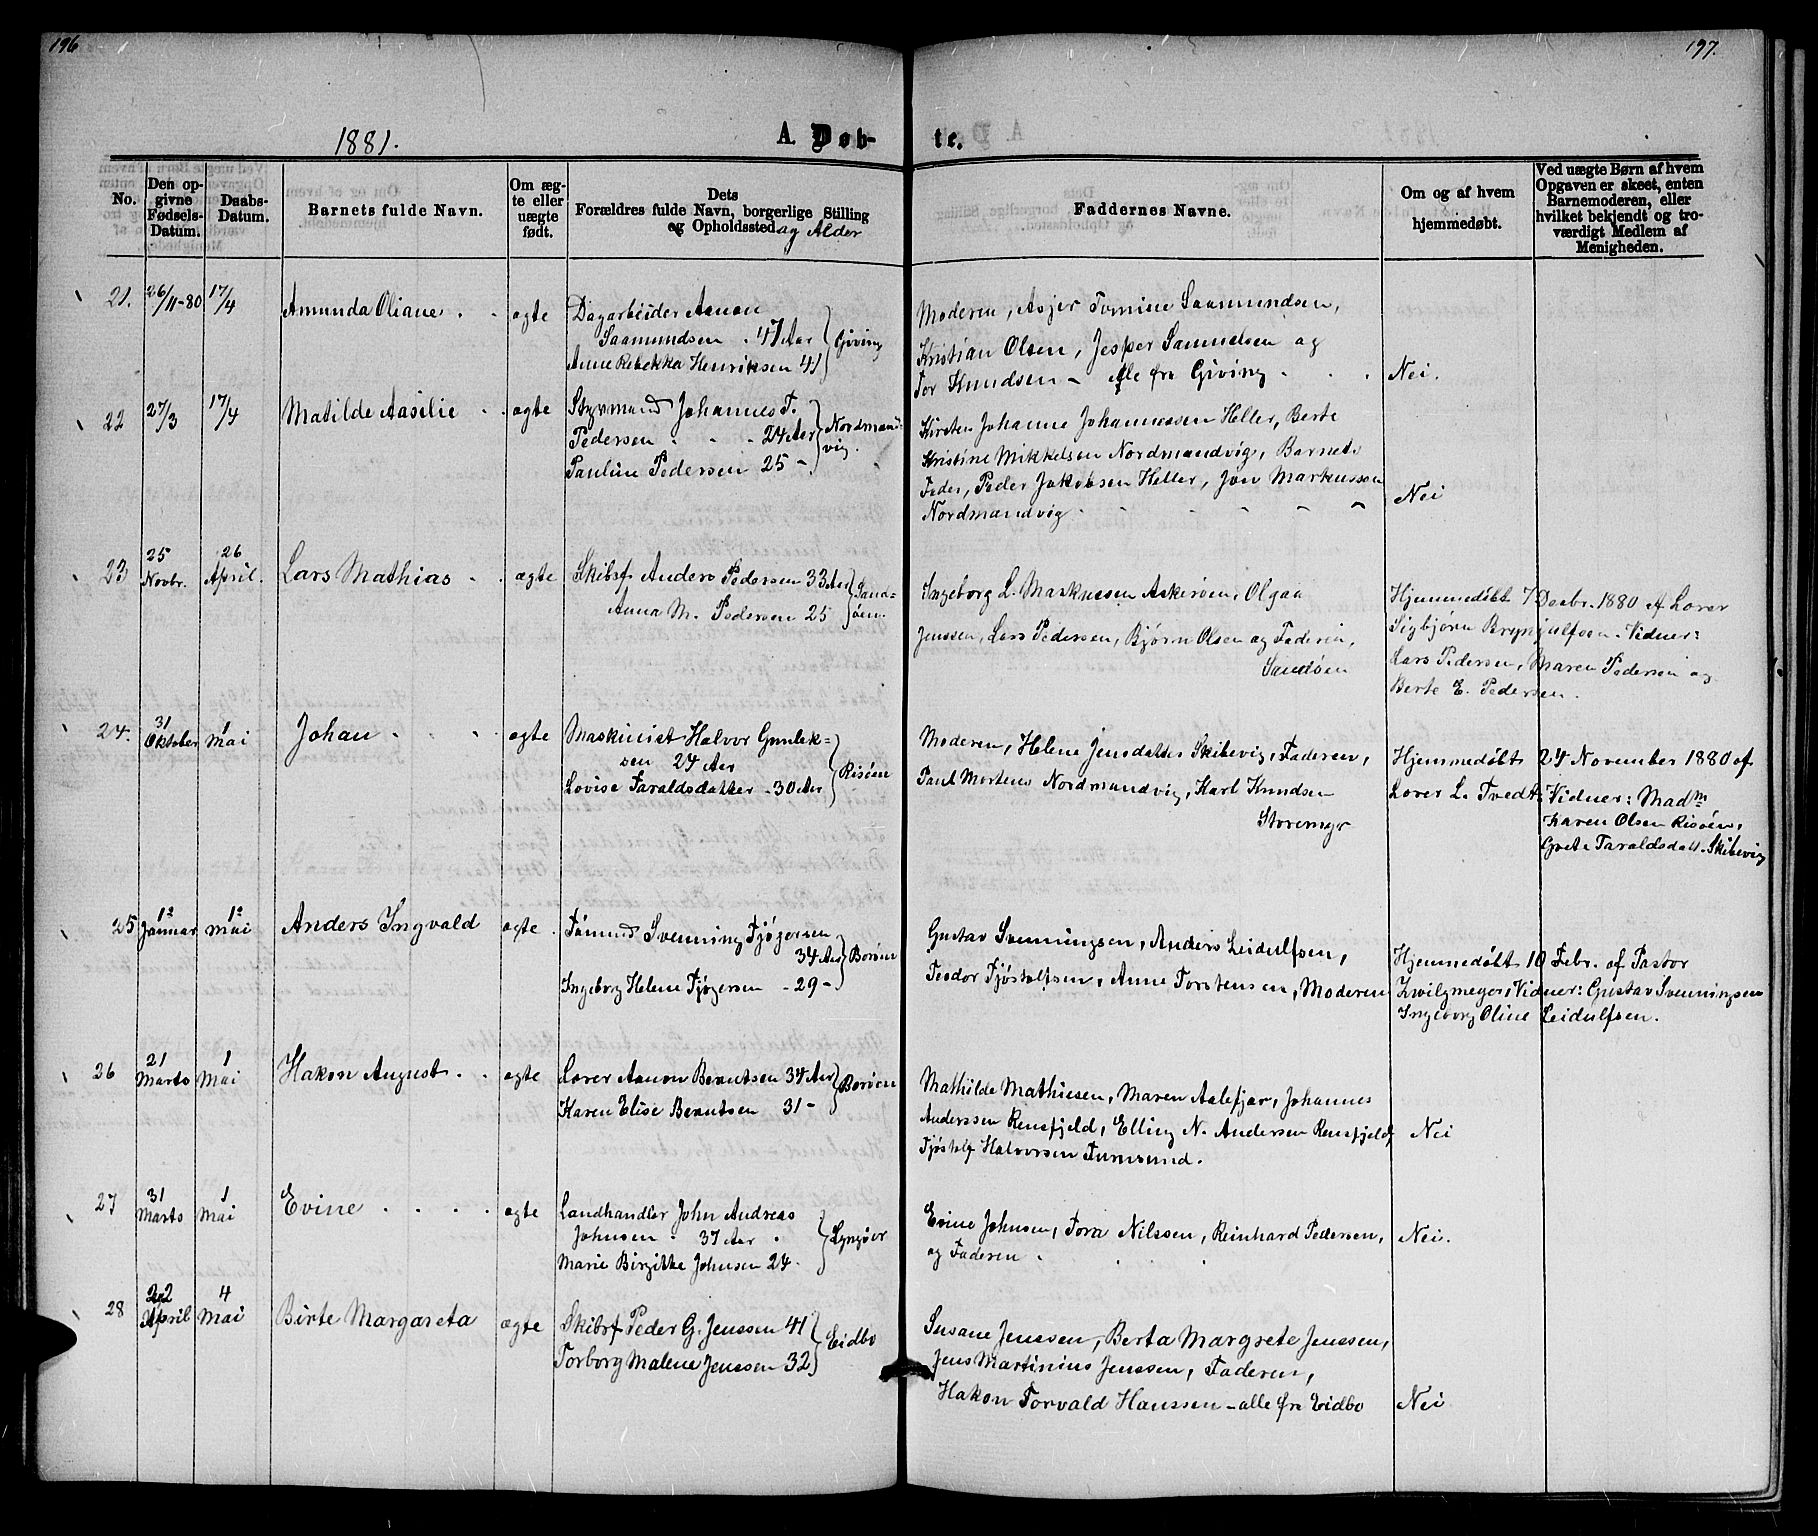 196
197.
1881.
A. Døb-
te.
No.
Den op-
givne
Fødsels-
Datum.
Daabs-
Datum.
Barnets fulde Navn.
Om æg-
te eller
uægte
født.
Dets
Forældres fulde Navn, borgerlige Stilling
og Opholdssted og Alder
Faddernes Navne.
Om og af hvem
hjemmedøbt.
Ved uægte Børn af hvem
Opgaven er skeet, enten
Barnemoderen, eller
hvilket bekjendt og tro-
værdigt Medlem af
Menigheden.
21.
26/11-80
17/4
Amunda Oliane
ægte
Dagarbeider Aanon
Saamundsen 47 Aar
Anne Rebekka Henriksen 41
Giving
Moderen, Asjer Tomine Saamundsen,
Kristian Olsen, Jesper Samuelsen og
Tor Knudsen - alle fra Giving
Nei.
22
27/3
17/4
Matilde Aasilie
ægte
Styrmand Johannes T.
Pedersen 24 Aar
Pauline Pedersen 25 -
Nordmand-
vig.
Kirsten Johanne Johannessen Heller, Berte
Kristine Mikkelsen Nordmandvig, Barnets
Fader, Peder Jakobsen Heller, Jon Markussen
Nordmandvig
Nei
23
25
Novbr.
26
April.
Lars Mathias
ægte
Skibsf Anders Pedersen 33 Aar
Anna M. Pedersen 25
Sand-
øen.
Ingeborg L. Markussen Askerøen, Olgaa
Jenssen, Lars Pedersen, Bjørn Olsen og Faderen,
Sandøen
Hjemmedøbt 7 Decbr. 1880 af Lærer
Sigbjørn Brynjulfsen. Vidner:
Lars Pedersen, Maren Pedersen og
Berte E. Pedersen.
24.
31
Oktober
1
Mai
Johan
ægte
Maskinist Halvor Gunlek-
sen 24 Aar
Lovise Taraldsdatter - 30 Aar
Risøen
Moderen, Helene Jensdatter Skibevig, Faderen,
Paul Mortens Nordmandvig, Karl Knudsen
Storemyr
Hjemmedøbt 24 November 1880 af
Lærer L. Tvedt, Vidner: Madm
Karen Olsen Risøen,
Grete Taraldsdatt. Skibevig
25
12
Januar
12
Mai
Anders Ingvald
ægte
Tømmd Svenning Tjøgersen
34 Aar
Ingeborg Helene Tjøgersen - 29 -
Borøen
Gustav Svenningsen, Anders Leidulfsen,
Teodor Tjøstolfsen, Anne Torstensen, Moderen
Hjemmedøbt 10 Febr. af Pastor
Zwilgmeyer, Vidner: Gustav Svenningsen
Ingeborg Oline Leidulfsen.
26
21
Marts
1
Mai
Hakon August
ægte
Lærer Aanon Berntsen 34 Aar
Karen Elise Berntsen 31 -
Borøen
Mathilde Mathiesen, Maren Aalefjær, Johannes
Anderssen Rensfjeld, Elling N. Andersen Rensfjeld,
Tjøstolf Halvorsen
Nei
27
31
Marts
1
Mai
Evine
ægte
Landhandler John Andreas
Johnsen 37 Aar
Marie Birgitte Johnsen 24
Lyngøer
Evine Johnsen, Tora Nilssen, Reinhard Pedersen,
og Faderen
Nei.
28
22
April
4
Mai
Birte Margareta
ægte
Skibsf Peder G. Jenssen 41
Torborg Malene Jenssen 32
Eidbo
Susane Jenssen, Berta Margrete Jenssen,
Jens Martinius Jenssen, Faderen,
Hakon Torvald Hanssen - alle fra Eidbo
Nei